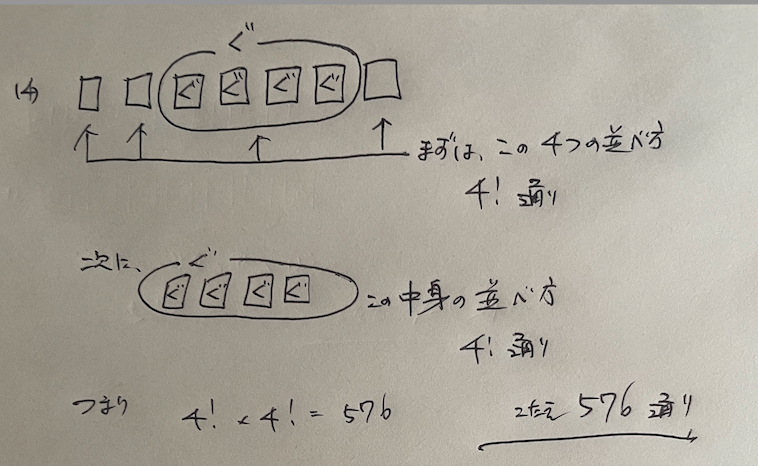 ぐ
(4) □ □ ぐ ぐ ぐ ぐ □
まずは、この4つの並べ方
4! 通り
次に、ぐ
ぐ ぐ ぐ ぐ この中身の並べ方
4! 通り
つまり 4! × 4! = 576 こたえ 576 通り